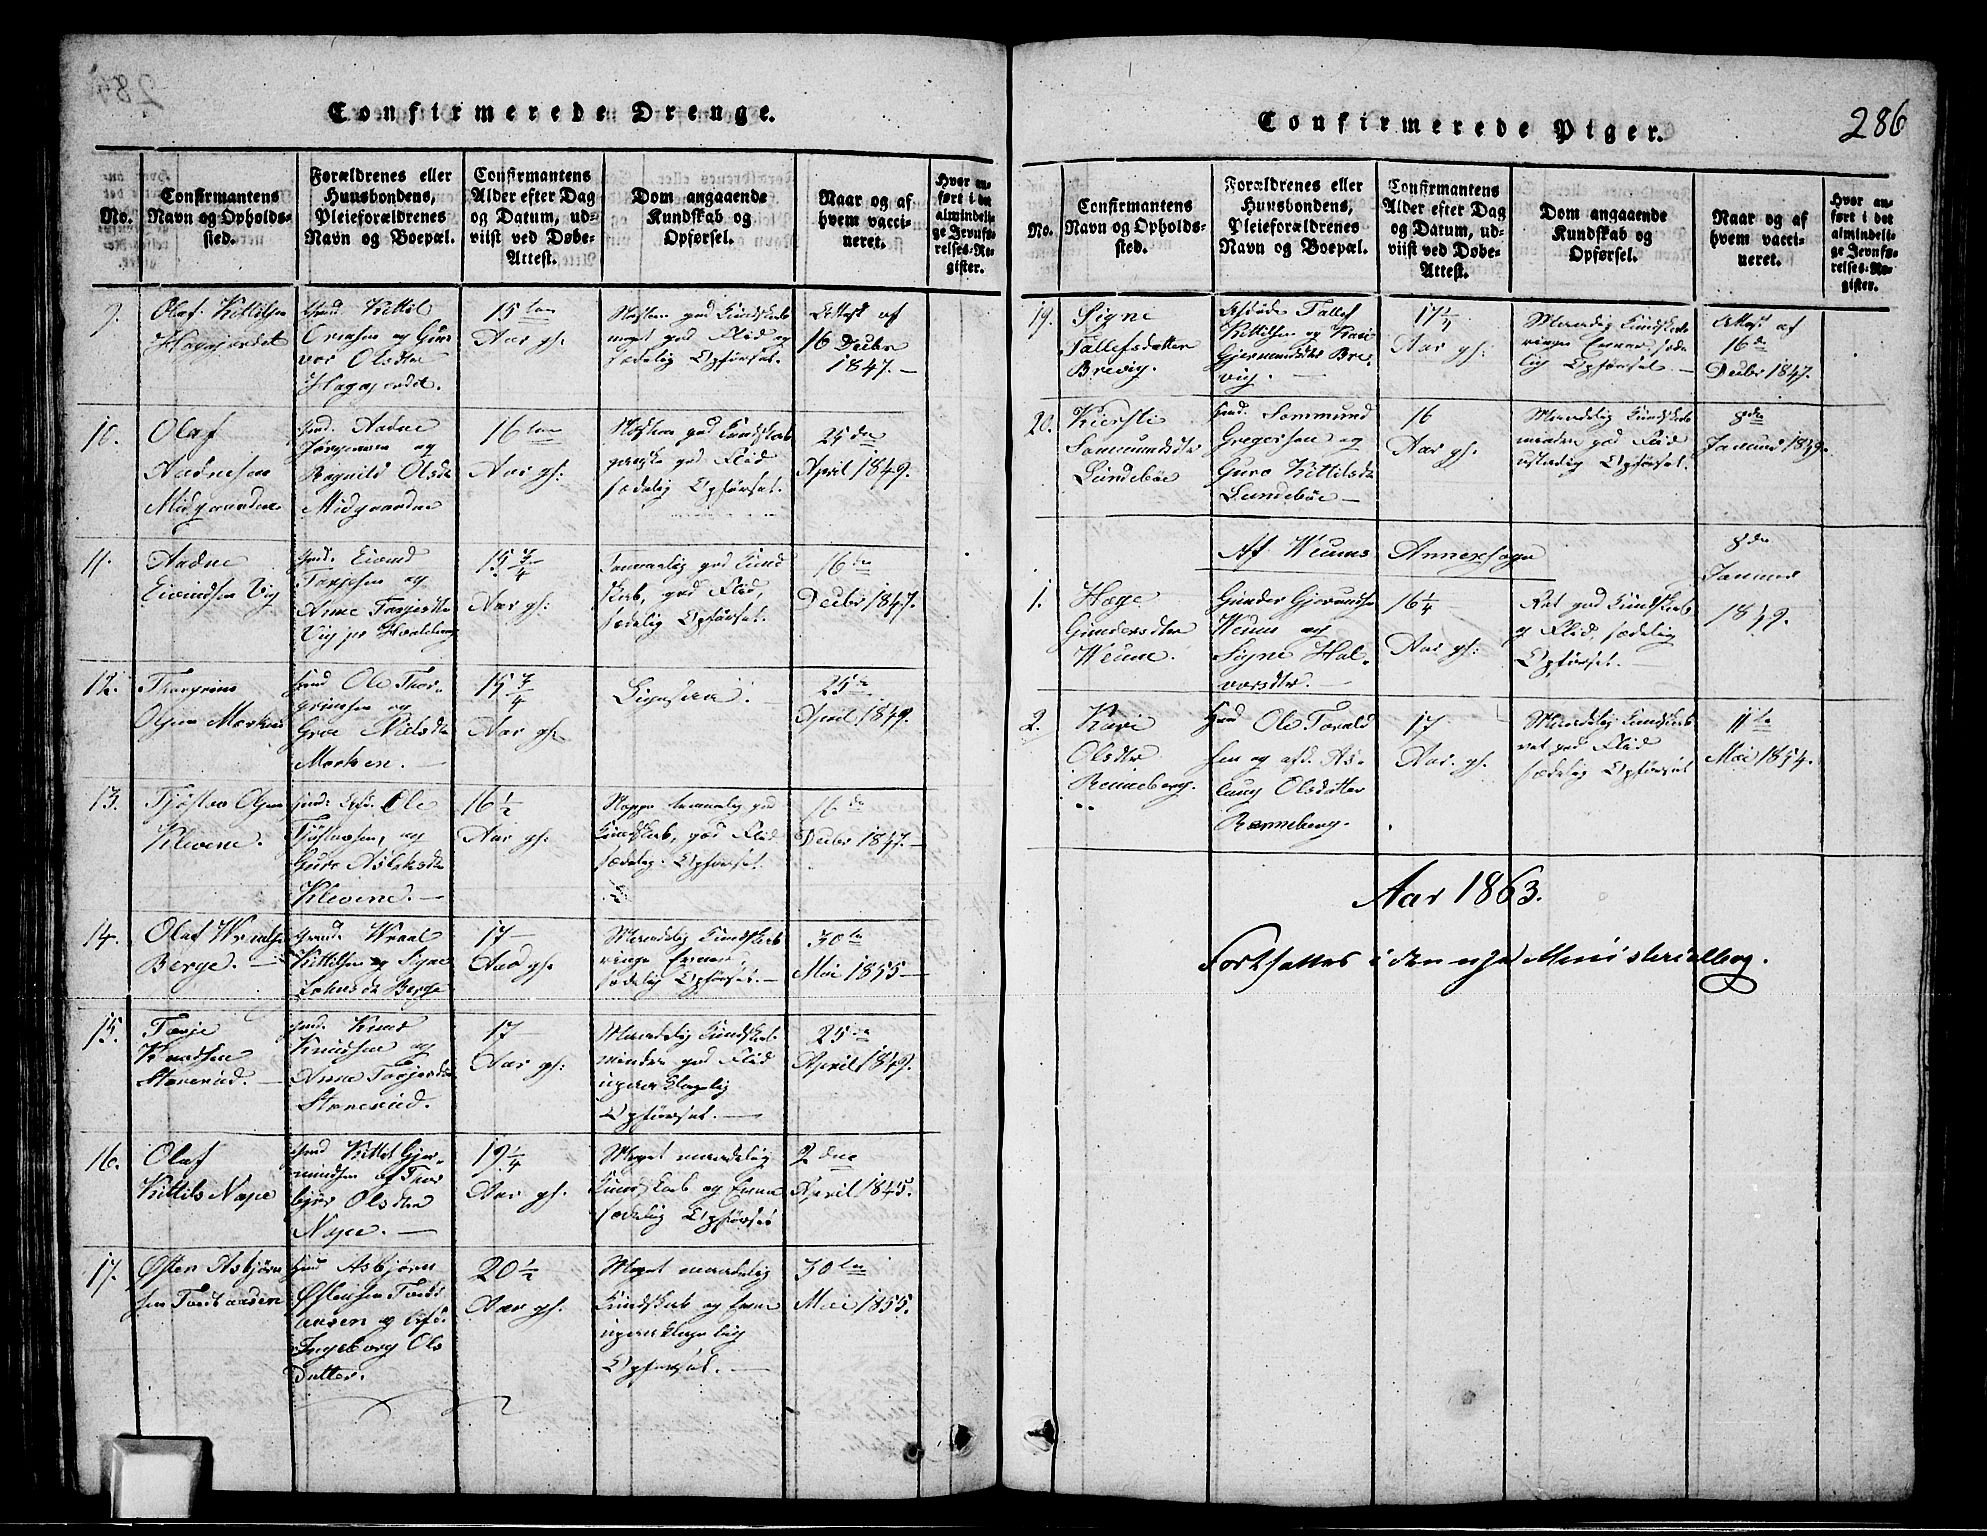 Confirmerede Drenge.
No.
Confirmantens
Navn og Opholds-
sted.
Forældrenes eller
Huusbondens,
Pleieforældrenes
Navn og Boepæl.
Confirmantens
Alder efter Dag
og Datum, ud-
viist ved Døbe-
Attest.
Dom angaaende
Kundskab og
Opførsel.
Naar og af
hvem vacci-
neret.
Hvor an-
ført i det
almindeli-
ge Jevnfø-
relses-Re-
gister.
9.
Olaf Kittilsen
Gmd. Kittil
Olsdtr
15
Aar gl:
god Kundskab
meget god Flid og
sædelig Opførsel.
Attest af
16 Decbr
1847.
10.
Olaf
Aadnesen
Midgaarden
Gmd. Aadne
Jørgensen og
Olsdtr
Midgaarden
16
Aar gl:
god Kundskab
ganske god Flid
sædelig Opførsel.
25de
April 1849.
11.
Aadne
Eivindsen Vig
Gmd. Eivind
Tarjesen og
Anne Tarjesdtr
15 3/4
Aar gl:
god Kund
skab, god Flid,
sædelig Opførsel.
16de
Decbr 1847.
12.
Olsen Morken
Gmd Ole Thor-
grimsen og
Groe Nielsdtr
Morken.
15 3/4
Aar gl.
Ligesaa.
25de
April 1849.
13.
Olsen
Klevene.
Ole
og
Guro Aslaksdtr
Klevene.
16 1/2
Aar gl:
Neppe temmelig god
Kundskab, god Flid
sædelig Opførsel.
16de
Decbr 1847.
14.
Olaf
Berge.
Gmd. Wraal
Kittilsen og Signe
Berge
17
Aar gl:
Maadelig Kundskab
ringe Evner,
sædelig Opførsel.
30te
Mai 1855
15.
Tarje
Knudsen
Gmd. Knud
Knudsen og
Anne Tarjesdtr
17
Aar gl:
Maadelig Kundskab
mindre god Flid
upaaklagelig
Opførsel.
25de
April 1849.
16.
Olaf
Kittils Nape
Gmd Kittil Gjer-
mundsen og Thor
bjør Olsdtr
Nape.
19 1/4
Aar gl.
Meget maadelig
Kundskab og Evner
sædelig Opførsel
2den
April 1845.
17.
Østen Asbjørn
sen
Gmd Asbjørn
Østensen
og
Ingeborg Ols
datter.
20 1/2
Aar gl.
Meget maadelig
Kundskab og Evner
upaaklagelig
Opførsel.
30te
Mai 1855.
Confirmerede Piger.
286
No.
Confirmantens
Navn og Opholds-
sted.
Forældrenes eller
Huusbondens,
Pleieforældrenes
Navn og Boepæl.
Confirmantens
Alder efter Dag
og Datum, ud-
viist ved Døbe-
Attest.
Dom angaaende
Kundskab og
Opførsel.
Naar og af
hvem vacci-
neret.
Hvor an-
ført i det
almindeli-
ge Jevnfø-
relses-Re-
gister.
19.
Signe
Tallefsdatter
Brevig.
Afdøde Tallef
Kittilsen og Kari
Gjermundsdtr Bre-
vig.
17 1/4
Aar gl:
Maadelig Kundskab
ringe Evner, sæde
lig Opførsel
Attest af
16de
Decbr 1847.
20.
Kiersti
Sommundsdtr
Lundebøe
Gmd. Sommund
Gregersen og
Guro Kittilsdtr
Lundebøe
16
Aar gl.
Maadelig Kundskab
mindre god Flid
Opførsel.
8de
Januar 1849.
Af Weums Annexsogn
1.
Hæge
Gundersdtr
Weum.
Gunder
Weum og
Signe Hal-
vorsdtr.
16 1/4
Aar gl:
Ret god Kundskab
og Flid, sædelig
Opførsel.
8de
Januar
1849.
2.
Kari
Olsdtr
Renneberg.
Gmd Ole Torald
sen og afd. As-
laug Olsdatter
Renneberg.
17
Aar gl.
Maadelig Kundskab
ret god Flid
sædelig Opførsel
11te
Mai 1854.
Aar 1863.
Fortsættes i den nye Ministerialbog.